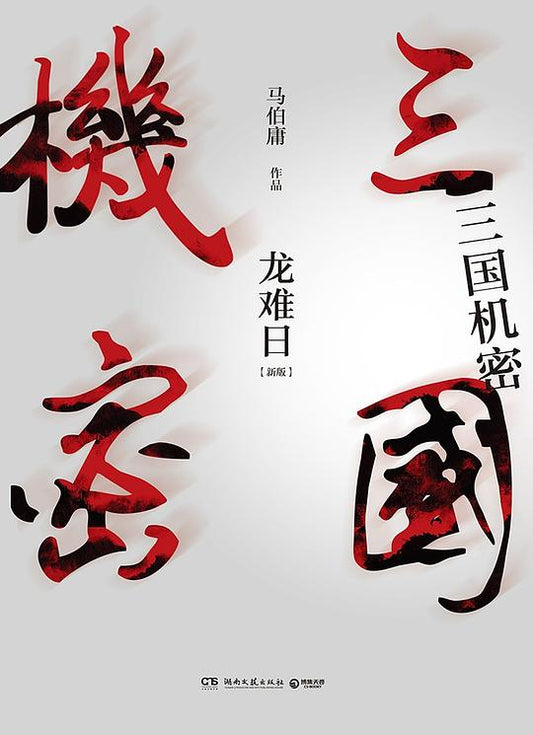 三國
機密
三国机密
马伯庸
作品
龙难日
【新版】
湖南文艺出版社
博集天卷
CS-BOOKY